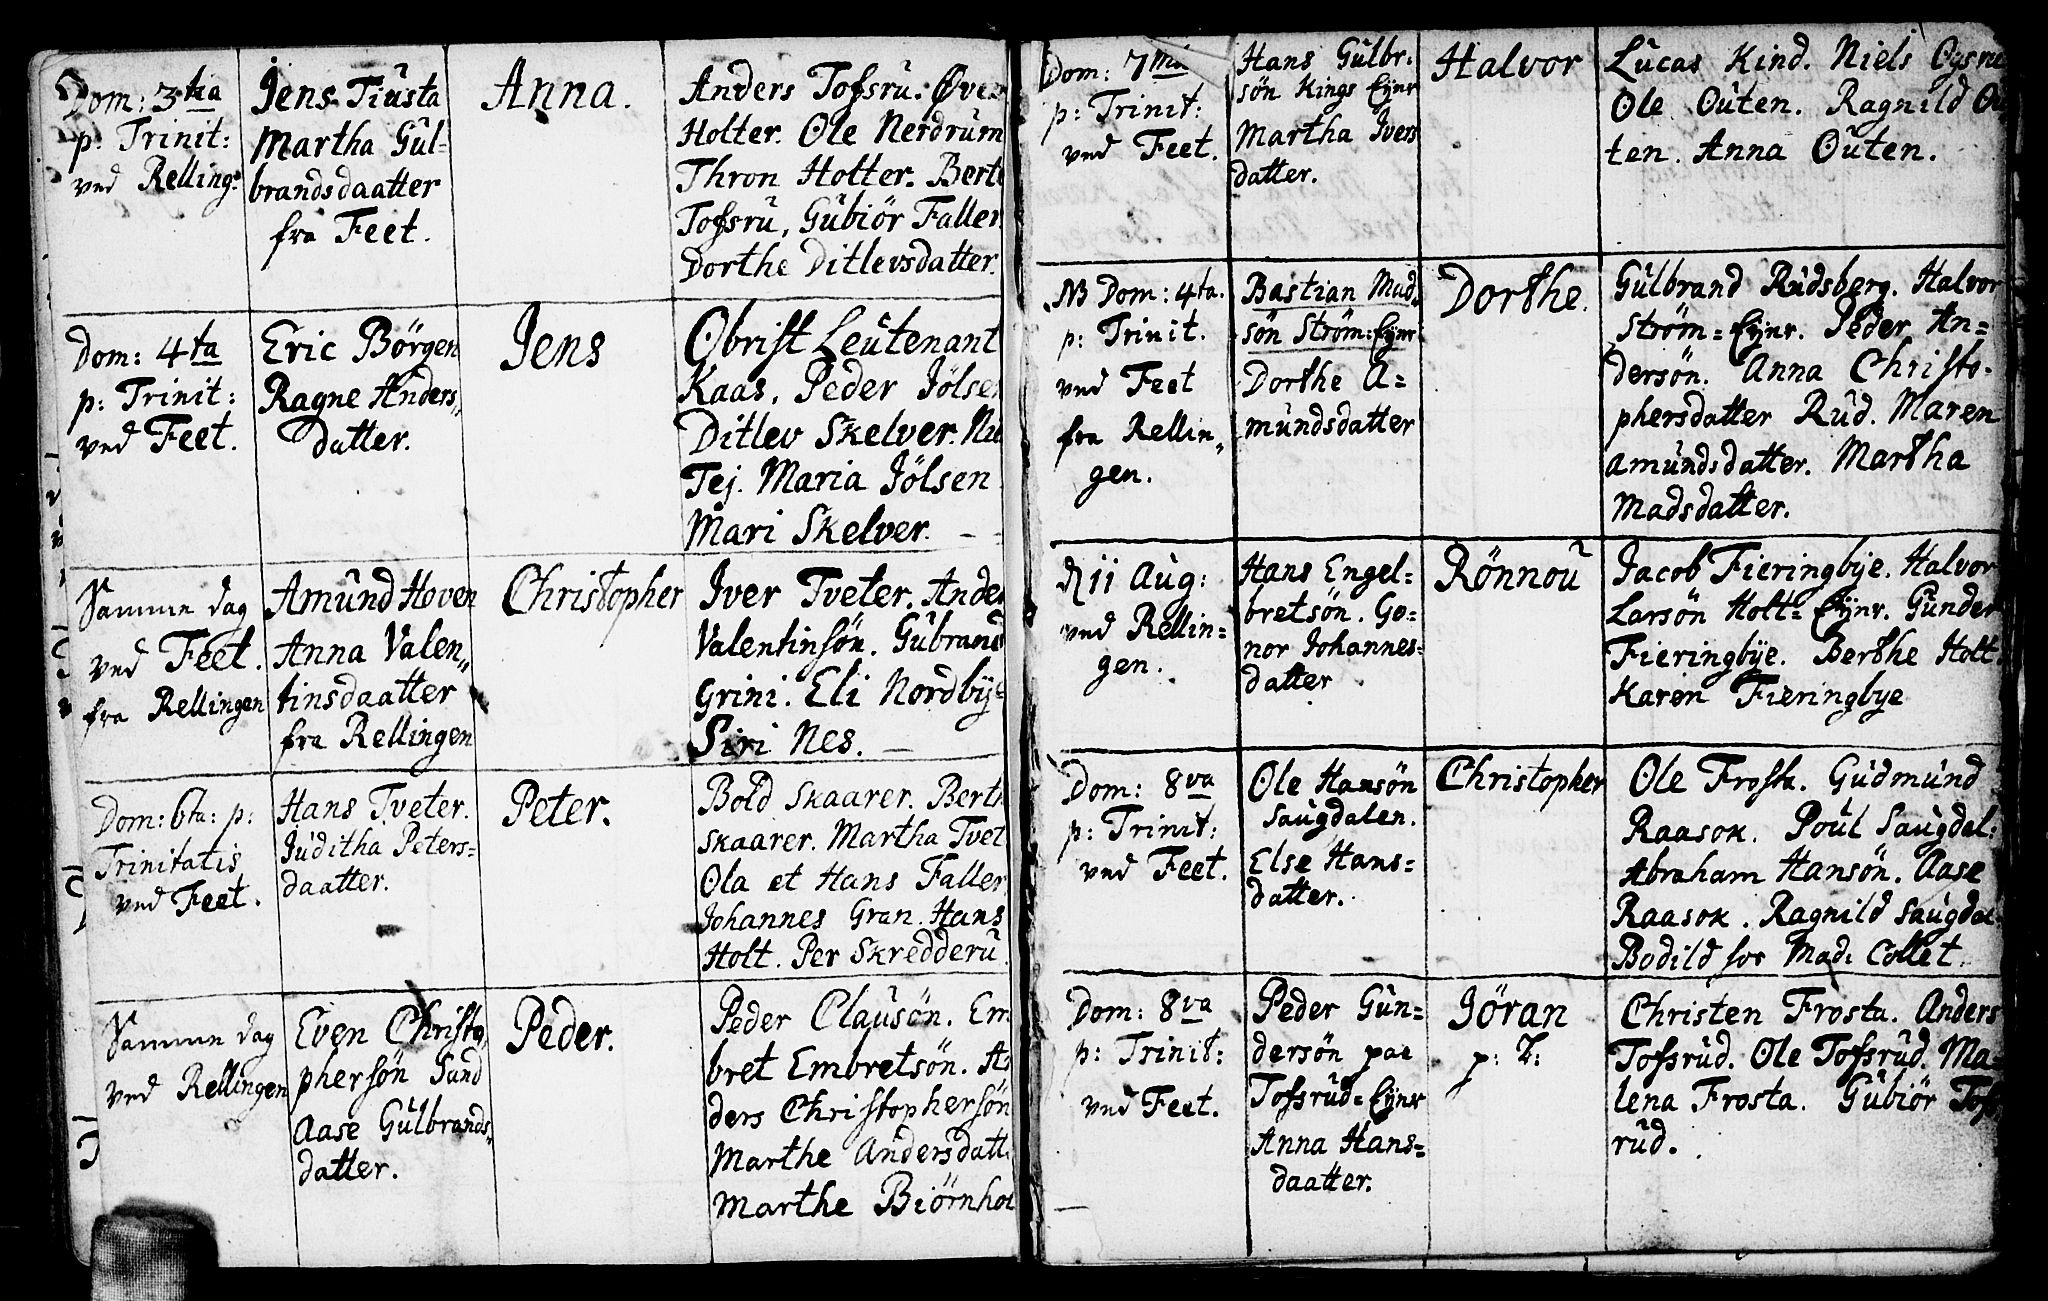 Dom: 3tia
p: Trinit:
ved Relling:
Jens Tiusta
Martha Gül-
brandsdaatter
fra Feet.
Anna.
Anders Tofsrü. Øver
Holter. Ole Nerdrüm
Thron Holter. Berte
Tofsrü, Gübiör Faller
Dorthe Ditlevsdatter.
Dom: 4ta
p: Trinit:
ved Feet.
Eric Börgen
Ragne Anders„
datter.
Jens
Obrist Leütenant
Kaas. Peder Jölsen
Ditlev Skelver.
Tej. Maria Jölsen
Mari Skelver.
Samme dag
ved Feet.
fra Rellingen
Amünd Hoven
Anna Valen„
tinsdaatter
fra Rellingen
Christopher
Iver Tveter. Ander
Valentinsön. Gübrand
Grini. Eli Nordbÿe
Siri Nes.
Dom: 6ta: p:
Trinitatis
ved Feet.
Hans Tveter.
Jüditha Peters=
daatter.
Peter.
Bold Skaarer. Berth
Skaarer. Martha Tvet
Ola et Hans Faller
Johannes Gran. Hans
Holt. Per Skredderü.
Samme dag
ved Rellingen
Even Christo
phersön Sünd
Aase Gülbrands„
datter.
Peder.
Peder Claüsön. Em
bret Embretsön. An
ders Christophersön
Marthe Andersdatt
Marthe Biörnhol
Dom: 7ma
p: Trinit:
ved Feet.
Hans Gülbr:
sön Kings Eÿnr
Martha Ivers
datter.
Halvor
Lücas Kind. Niels
Ole Oüten. Ragnild Oü
ten. Anna Oüten.
NB Dom: 4ta.
p: Trinit.
ved Feet
fra Rellin„
gen.
Bastian Mad
sön Ström=Eÿnr
Dorthe A=
mündsdatter
Dorthe.
Gülbrand Rüdsberg. Halvor
Ström=Eÿnr. Peder An=
dersön. Anna Christo-
phersdatter Rüd. Maren
amündsdatter. Martha
Madsdatter.
d 11 Aug:
ved Rellin=
gen.
Hans Engel=
bretsön. Go=
nor Johannes=
datter
Rönnoü
Jacob Fieringbÿe. Halvor
Larsön Holt=Eÿnr. Günder
Fieringbÿe. Berthe Holt
Karen Fieringbye
Dom: 8va
p: Trinit:
ved Feet.
Ole Hansön
Saügdalen.
Else Hans=
datter.
Christopher
Ole Frosta. Güdmünd
Raasok. Poül Saügdal:
Abraham Hansön. Aase
Raasok. Ragnild Saügdal
Bodild for Mad: Collet.
Dom: 8va
p: Trinit:
ved Feet.
Peder Gün=
dersön paa
Tofsrüd=Eÿnr
Anna Hans=
daatter.
Jöran
p: T:
Christen Frosta. Anders
Tofsrüd. Ole Tofsrüd. Ma=
lena Frosta. Gübiör Tofs
rüd.